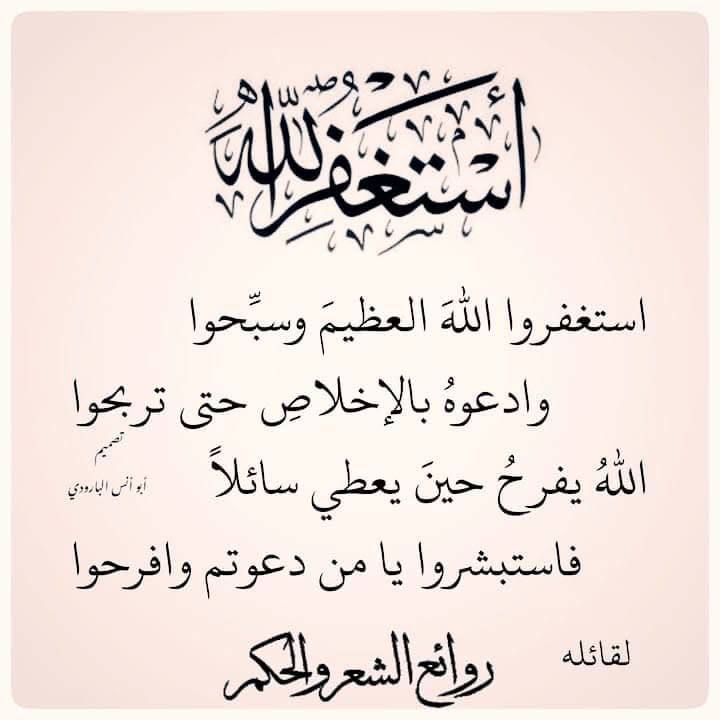 أستغفر الله
استغفروا اللهَ العظيمَ وسبِّحوا
وادعوهُ بالإخلاصِ حتى تربحوا
تصميم
اللهُ يفرحُ حينَ يعطي سائلاً
أبو أنس البارودي
فاستبشروا يا من دعوتم وافرحوا
لقائله
روائع الشعر والحكم